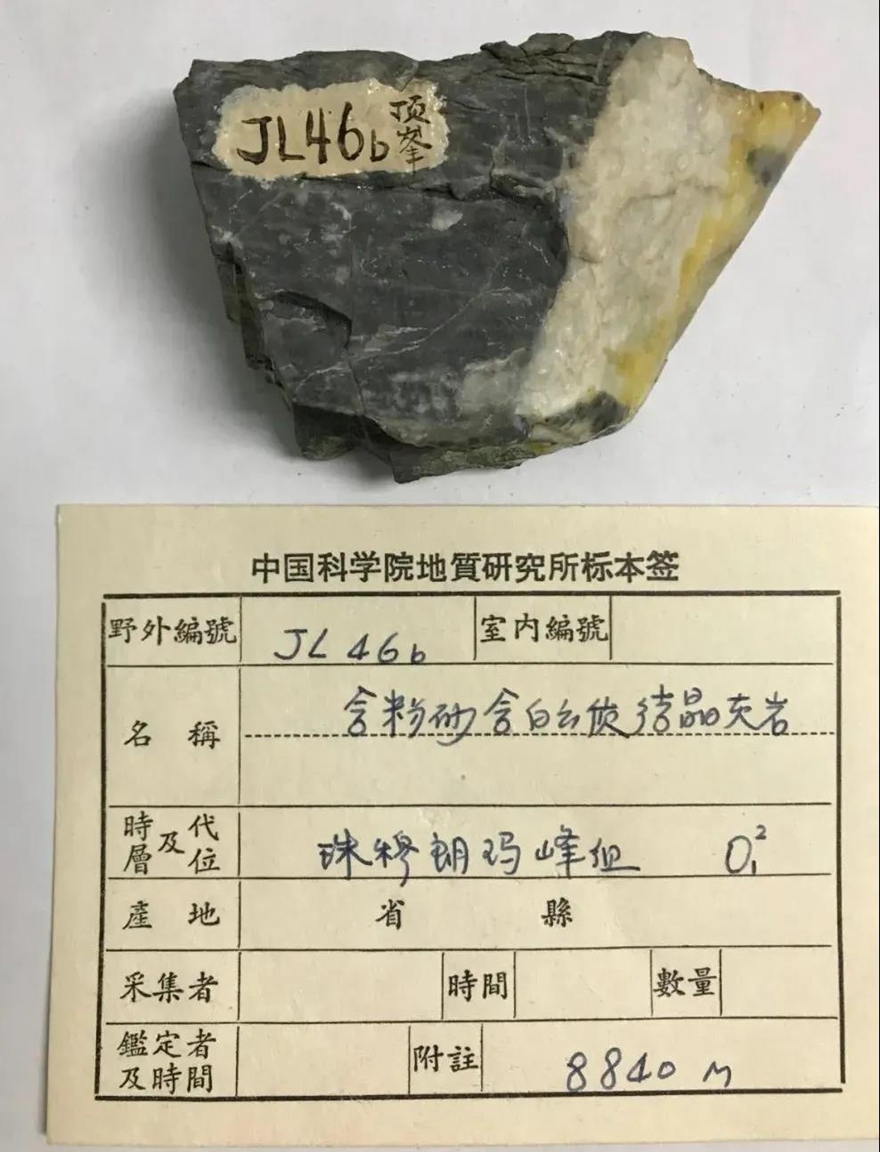 JL46b 顶峯
中国科学院地質研究所标本签
野外編號 JL 46b 室内編號
名稱 含粉砂含白云质结晶灰岩
時代及層位 珠穆朗玛峰组 O₁²
產地 省 縣
采集者 時間 數量
鑑定者及時間 附註 8840 M